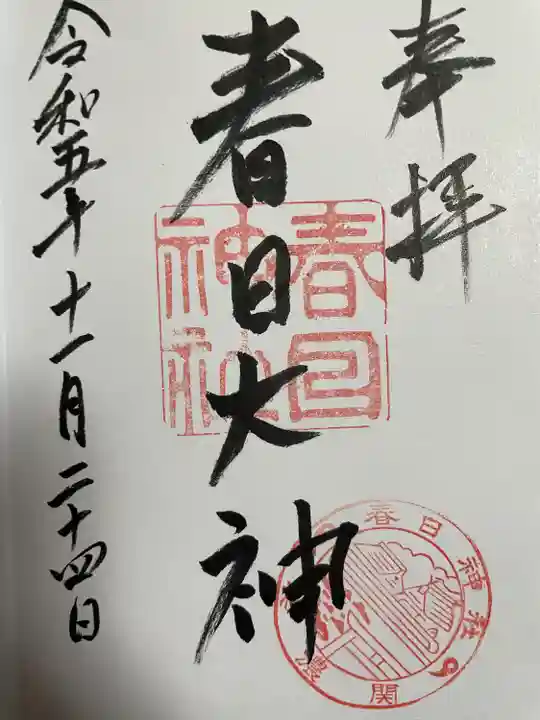 奉拝
春日大神
令和五年十一月二十四日
春日
神社
春日神社
関